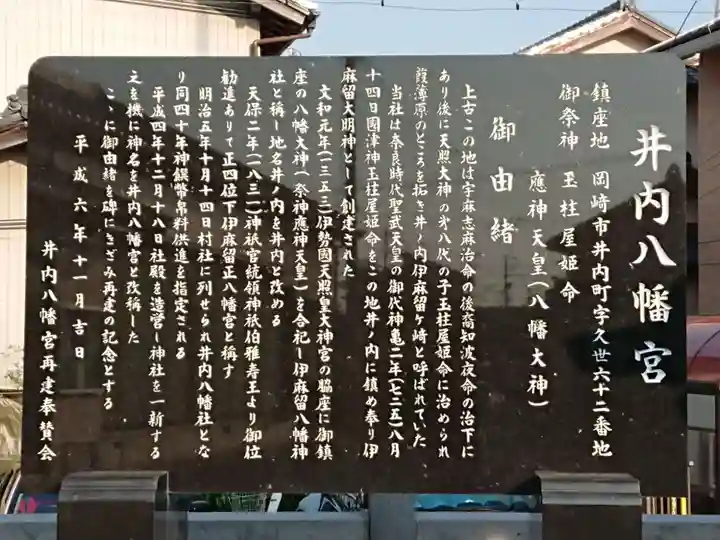 井内八幡宮
鎮座地 岡崎市井内町字久世六十二番地
御祭神 玉柱屋姫命
應神天皇(八幡大神)
御由緒
上古この地は宇麻志麻治命の後裔知波夜命の治下に
あり後に天照大神の㐧八代の子玉柱屋姫命に治められ
葭薄原のところを拓き井ノ内伊麻留ヶ崎と呼ばれていた
当社は奈良時代聖武天皇の御代神亀二年(七二五)八月
十四日國津神玉柱屋姫命をこの地井ノ内に鎮め奉り伊
麻留大明神として創建された
文和元年(一三五三)伊勢國天照皇大神宮の脇座に御鎮
座の八幡大神(祭神應神天皇)を合祀し伊麻留八幡神
社と称し地名井ノ内を井内と改める
天保二年(一八三一)神祇官統領神祇伯雅寿王より御位
勧進ありて正四位下伊麻留正八幡宮と称す
明治五年十月十四日村社に列せられ井内八幡社とな
り同四十年神饌幣帛料供進を指定される
平成四年十二月十八日社殿を造営し神社を一新する
之を機に神名を井内八幡宮と改称した
こゝに御由緒を碑にきざみ再建の記念とする
平成六年十一月吉日
井内八幡宮再建奉賛会